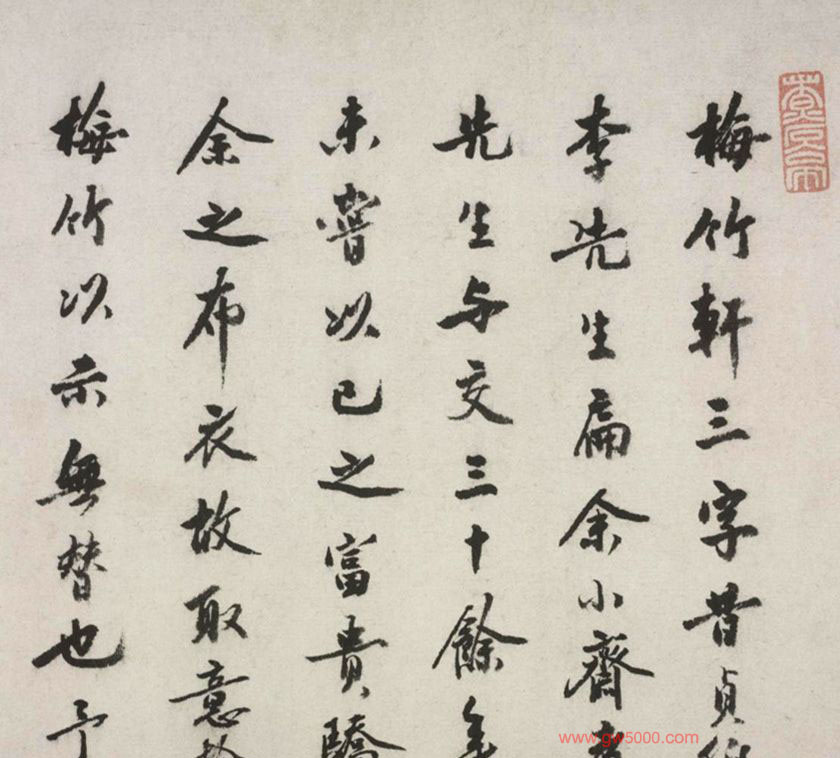 梅竹軒三字昔貞
李先生扁余小齋
先生与交三十餘年
未嘗以己之富貴驕
余之布衣故取意於
梅竹以示無替也予
www.gw5000.com